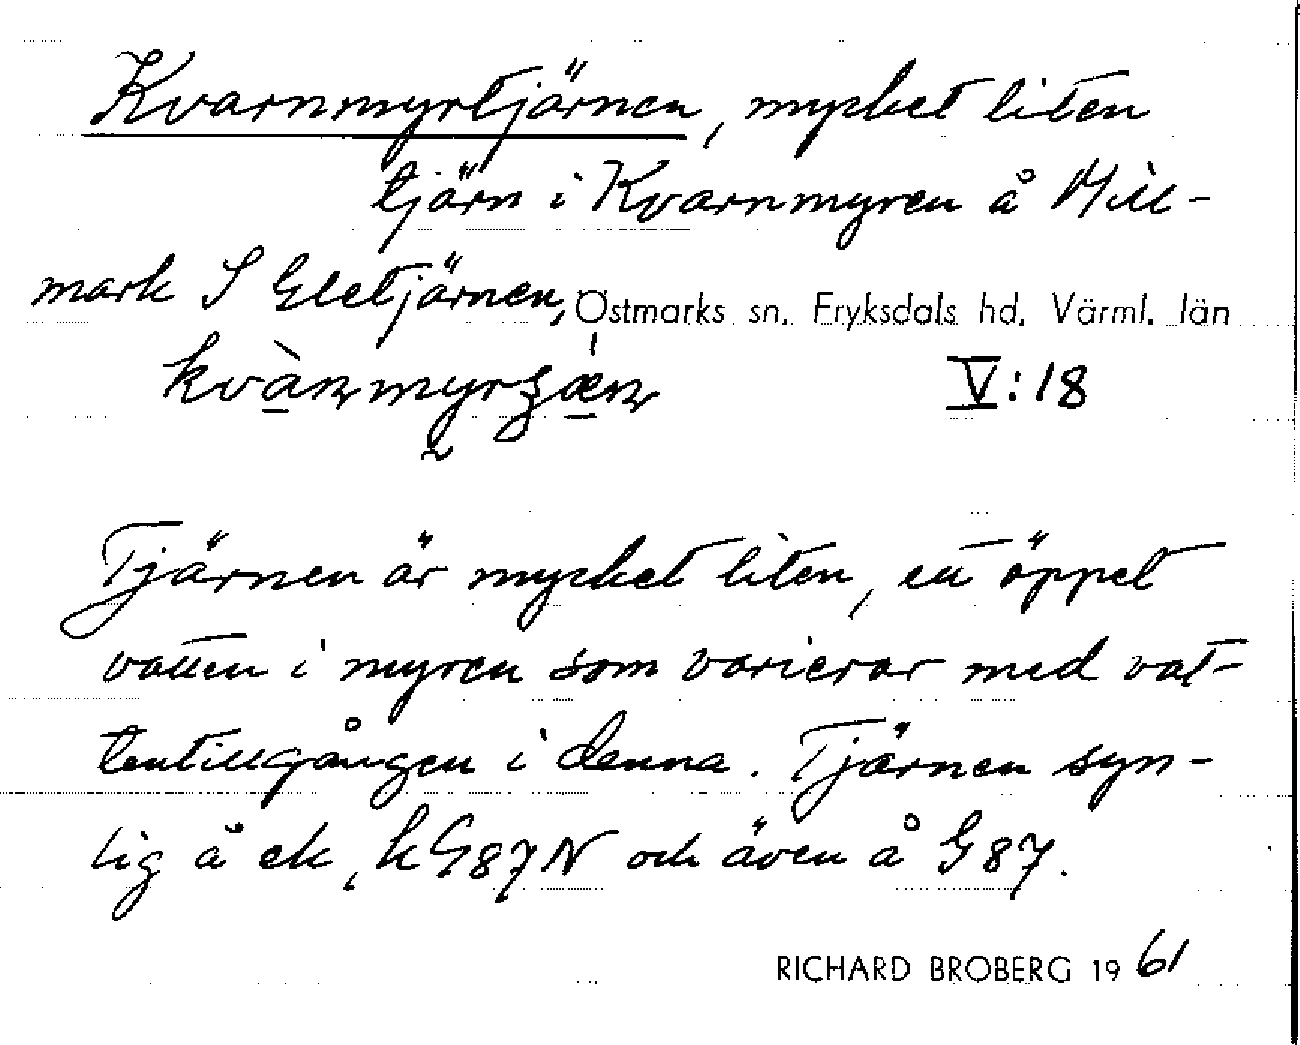 Kvarnmyrtjärnen, mycket liten
tjärn i Kvarnmyren å Mill-
mark S Gletjärnen, Östmarks sn. Fryksdals hd. Värml. län
V:18
Tjärnen är mycket liten, ett öppet
vatten i myren som varierar med vat-
tentillgången i denna. Tjärnen syn-
lig å ek, k G87N och även å G87.
RICHARD BROBERG 1961